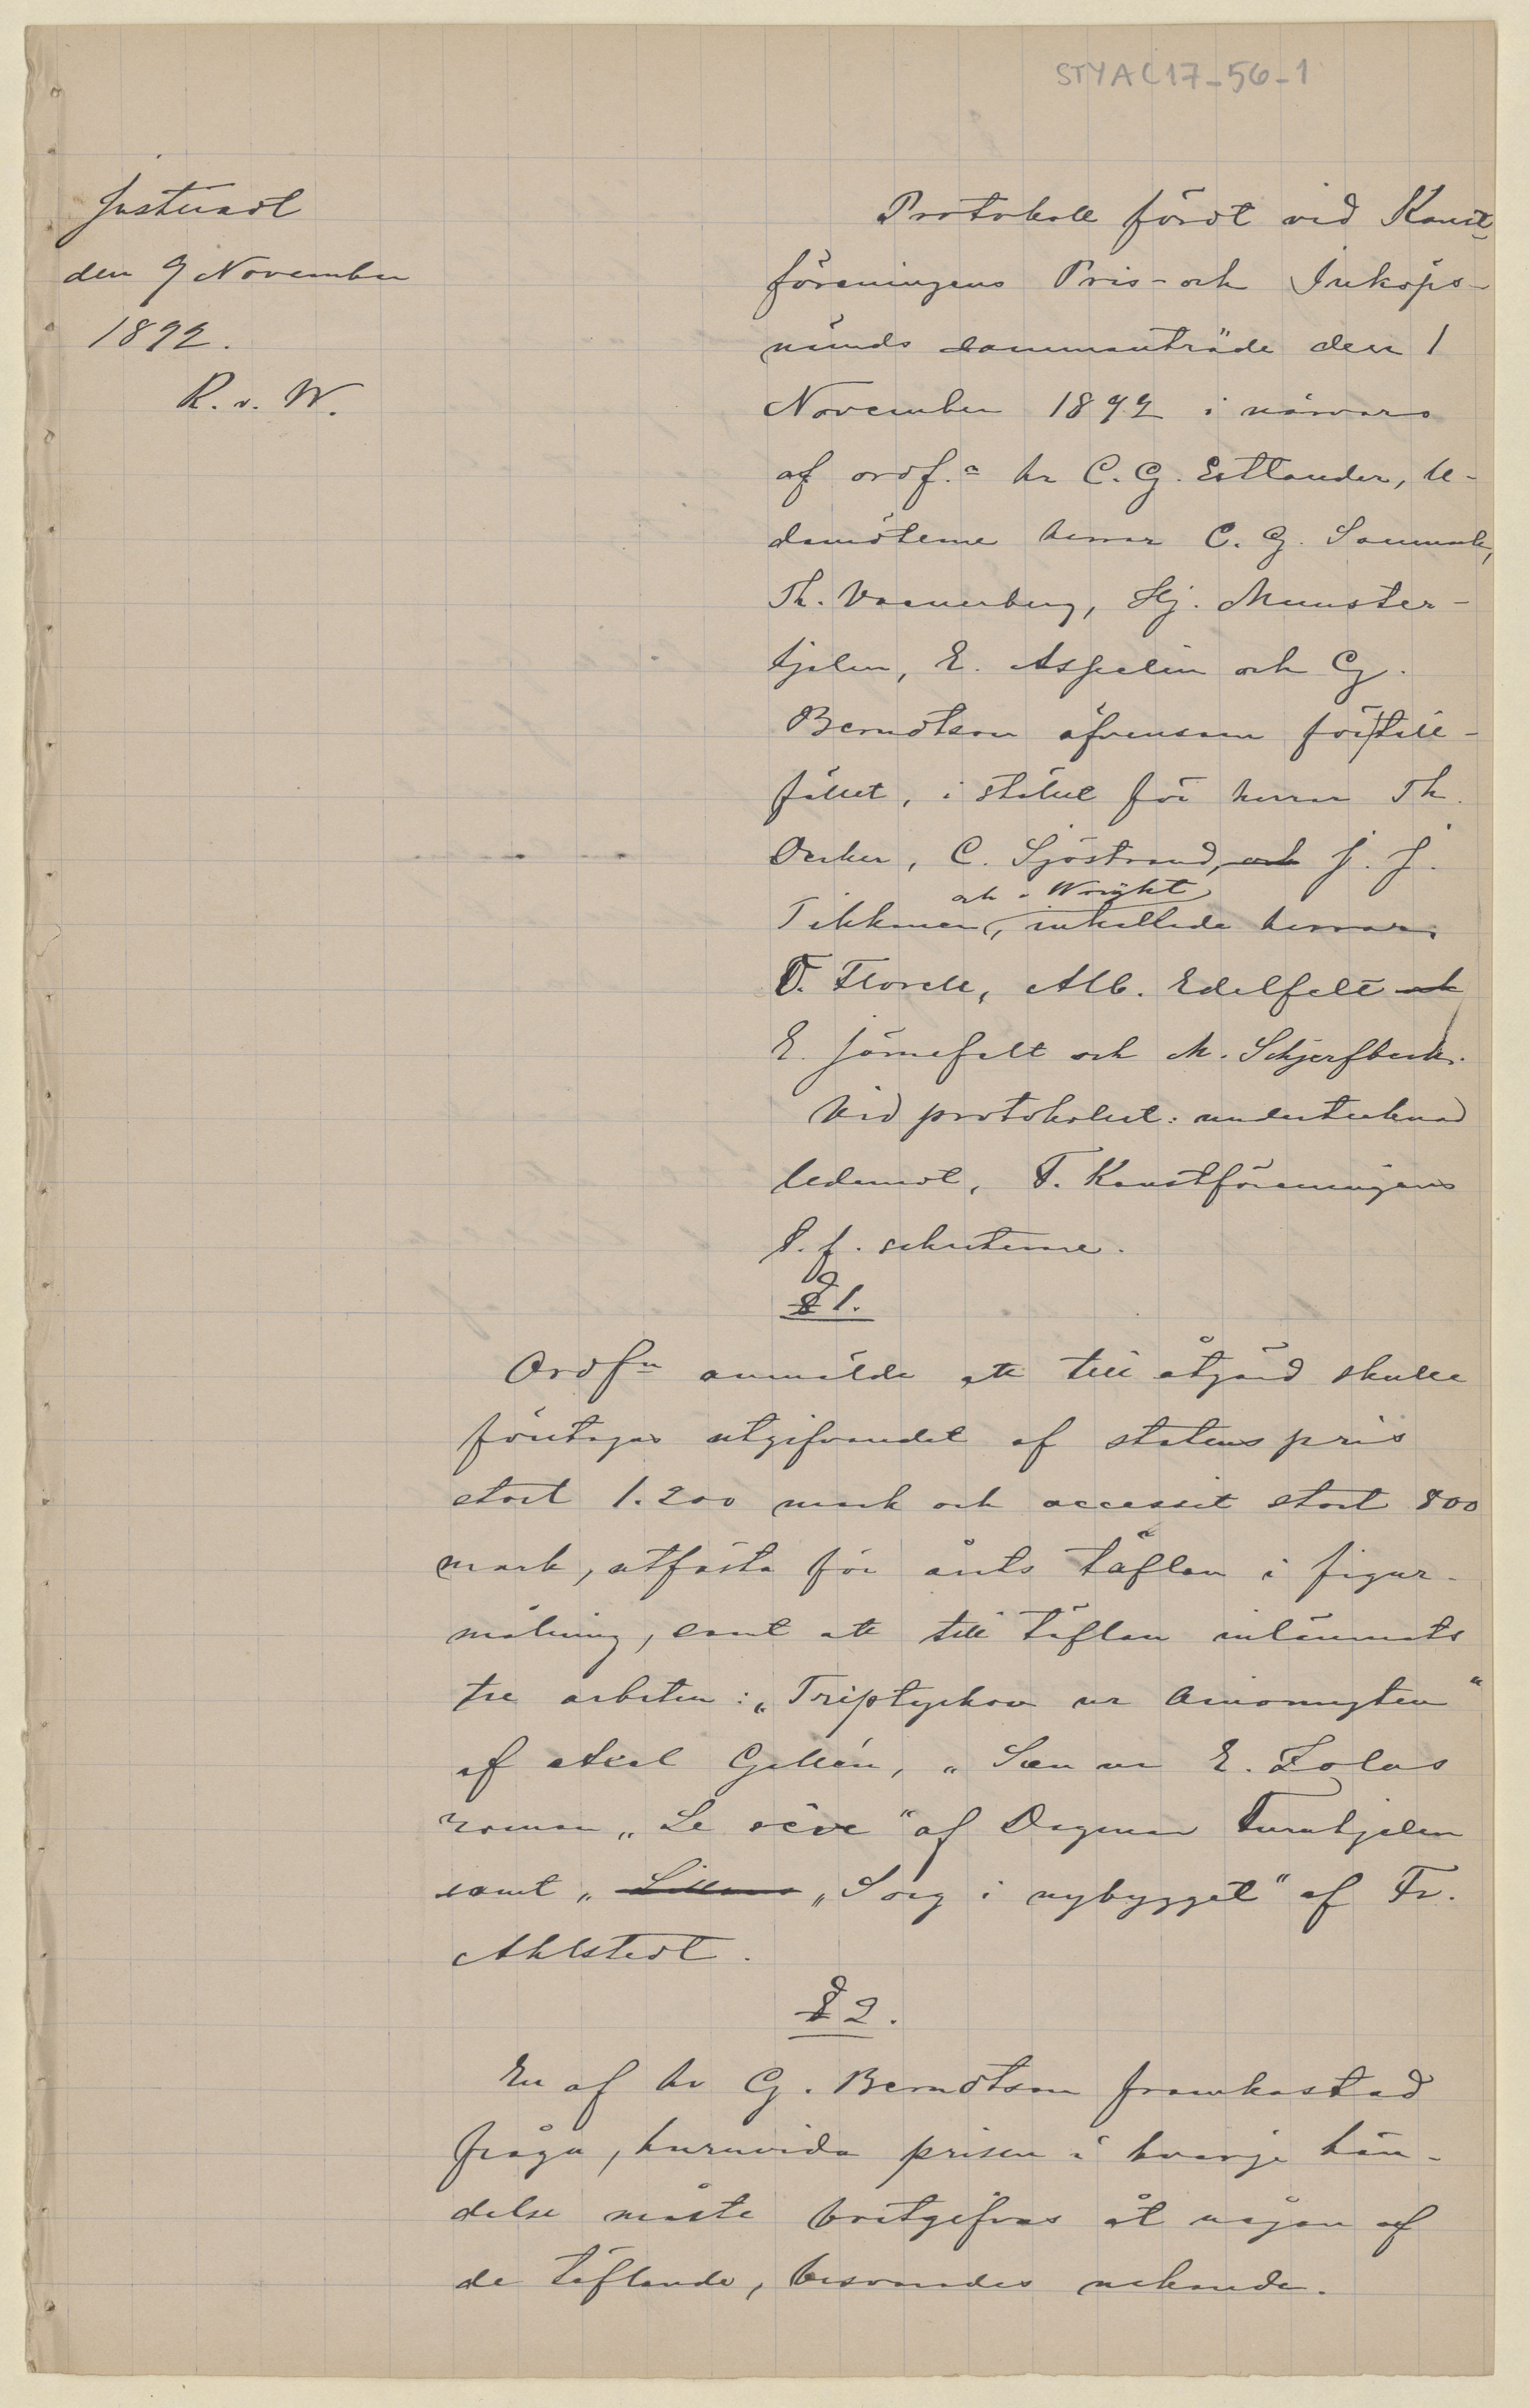 STYA C17-56-1
Justeradt
den 9 November
1892.
R. v. W.
Protokoll fördt vid Konst-
föreningens Pris- och Inköps-
nämds sammanträde den 1
November 1892 i närvaro
af ordf.e hr C. G. Estlander, le-
damöterne herrar C. G. Sanmark,
Th. Waenerberg, Hj. Munster-
hjelm, E. Aspelin och G.
Berndtson äfvensom för till-
fället, i stället för herrar Th.
Decker, C. Sjöstrand, och J. J.
och v. Wright
Tikkanen, inkallade herrar
F. Florell, Alb. Edelfelt och
E. Järnefelt och M. Schjerfbeck.
Vid protokollet: undertecknad
ledamot, F. Konstföreningens
t. f. sekreterare.
§ 1.
Ordfn anmälde att till åtgärd skulle
företagas utgifvandet af statens pris
stort 1.200 mark och accessit stort 800
mark, utfästa för årets täflan i figur-
målning, samt att till täflan inlämnats
tre arbeten: „Triptychon ur Ainomyten"
af Axel Gallén, „Scen ur E. Zolas
roman „Le rêve" af Dagmar Furuhjelm
samt „ „Sorg i nybygget" af Fr.
Ahlstedt.
§ 2.
En af hr G. Berndtson framkastad
fråga, huruvida prisen i hvarje hän-
delse måste bortgifvas åt någon af
de täflande, besvarades nekande.